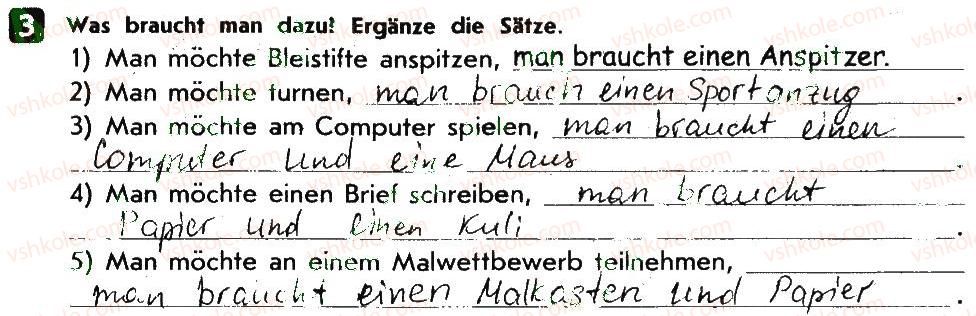 3 Was braucht man dazu? Ergänze die Sätze.
1) Man möchte Bleistifte anspitzen, man braucht einen Anspitzer.
2) Man möchte turnen, man brauch einen Sportanzug.
3) Man möchte am Computer spielen, man braucht einen
Computer und eine Maus.
4) Man möchte einen Brief schreiben, man braucht
Papier und einen Kuli.
5) Man möchte an einem Malwettbewerb teilnehmen,
man braucht einen Malkasten und Papier.